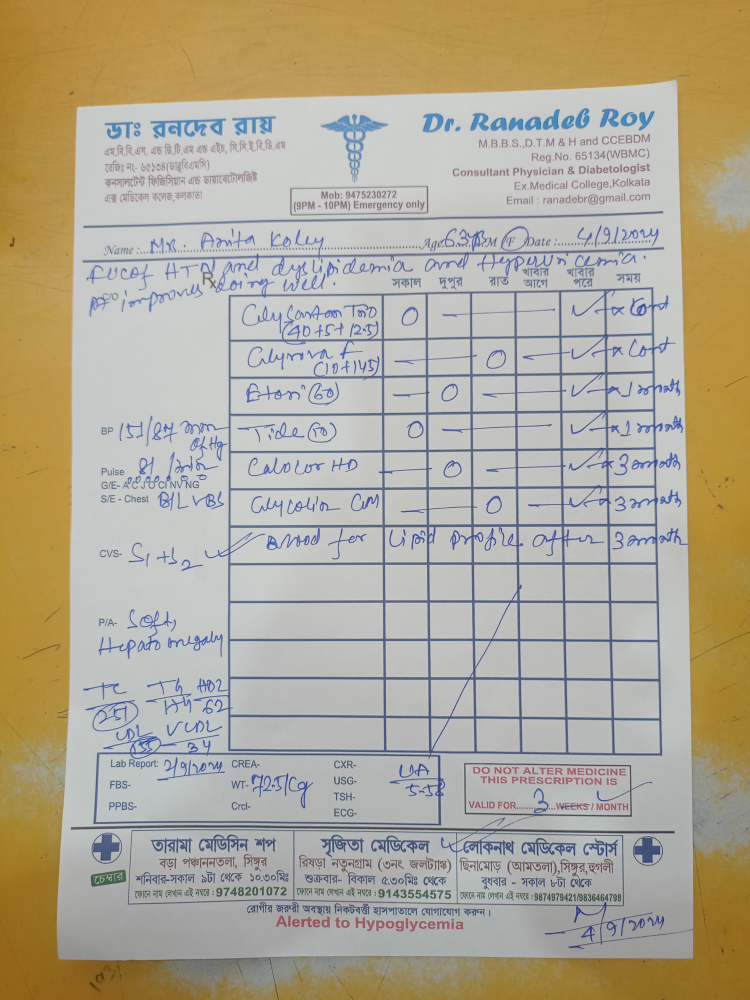 ডাঃ রনদেব রায়
এম,বি,বি,এস, এন্ড ডি,টি,এম এন্ড এইচ, সি,সি,ই,বি,ডি,এম
রেজিঃ নং- ৬৫১৩৪(ডাব্লুবিএমসি)
কনসালটেন্ট ফিজিসিয়ান এন্ড ডায়াবেটোলজিষ্ট
এক্স মেডিকেল কলেজ,কলকাতা
Mob: 9475230272
(9PM - 10PM) Emergency only
Dr. Ranadeb Roy
M.B.B.S.,D.T.M & H and CCEBDM
Reg.No. 65134(WBMC)
Consultant Physician & Diabetologist
Ex.Medical College,Kolkata
Email : ranadebr@gmail.com
Name : Mr. Anita Koley Age: 63 M F Date : 4/9/2024
HTN and dyslipidemia and Hyperuricemia.
C/O Pt improves doing well.
Rx সকাল দুপুর রাত খাবার আগে খাবার পরে সময়
O ✓ x Cont
(40+5+12.5)
O ✓ x Cont
(10+145)
(60) O ✓ x 1 month
BP 151/87 mm of Hg
Tide (10) O ✓ x 1 month
Pulse 81 /min
O ✓ x 3 month
G/E- A C J O CI NV NG
S/E - Chest B/L VBS
O ✓ x 3 month
CVS- S1+S2
Blood for Lipid profile after 3 month
P/A- Soft,
Hepatomegaly
TC TG HDL
251 174 62
LDL VLDL
155 34
Lab Report: 2/9/2024 CREA- CXR- UA
FBS- WT- 72.5/Kg USG- 5.58
PPBS- Crcl- TSH-
ECG-
DO NOT ALTER MEDICINE
THIS PRESCRIPTION IS
VALID FOR 3 WEEKS / MONTH
চেম্বার
তারামা মেডিসিন শপ
বড়া পঞ্চাননতলা, সিঙ্গুর
শনিবার-সকাল ৯টা থেকে ১০.৩০মিঃ
ফোনে নাম লেখান এই নম্বরে : 9748201072
সৃজিতা মেডিকেল
রিষড়া নতুনগ্রাম (৩নং জলট্যাঙ্ক)
শুক্রবার- বিকাল ৫.৩০মিঃ থেকে
ফোনে নাম লেখান এই নম্বরে : 9143554575
লোকনাথ মেডিকেল স্টোর্স
ছিনামোড় (আমতলা),সিঙ্গুর,হুগলী
বুধবার - সকাল ৮টা থেকে
ফোনে নাম লেখান এই নম্বরে : 9874979421/9836464798
রোগীর জরুরী অবস্থায় নিকটবর্ত্তী হাসপাতালে যোগাযোগ করুন।
Alerted to Hypoglycemia
4/9/2024